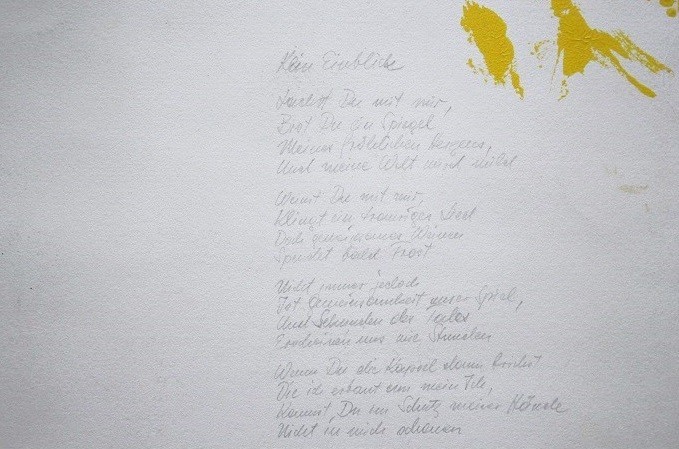 Kein Einblick
Lachst Du mit mir,
Bist Du ein Spiegel
Meines fröhlichen Herzens,
Und meine Welt wird
Weinst Du mit mir,
Klingt ein trauriges Lied
Doch gemeinsames Weinen
Spendet bald Trost
Nicht immer jedoch
Ist Gemeinsamkeit unser Spiel,
Und Sekunden des
Erscheinen uns wie Stunden
Wenn Du die Kapsel dann brichst
Die ich erbaut um mein Ich,
Kannst Du im Schutz meiner Hände
Nicht in mich schauen